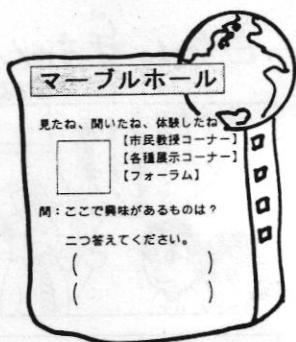 マーブルホール
見たね、聞いたね、体験したね
【市民教授コーナー】
【各種展示コーナー】
【フォーラム】
問：ここで興味があるものは？
二つ答えてください。
(　　　　　　　)
(　　　　　　　)